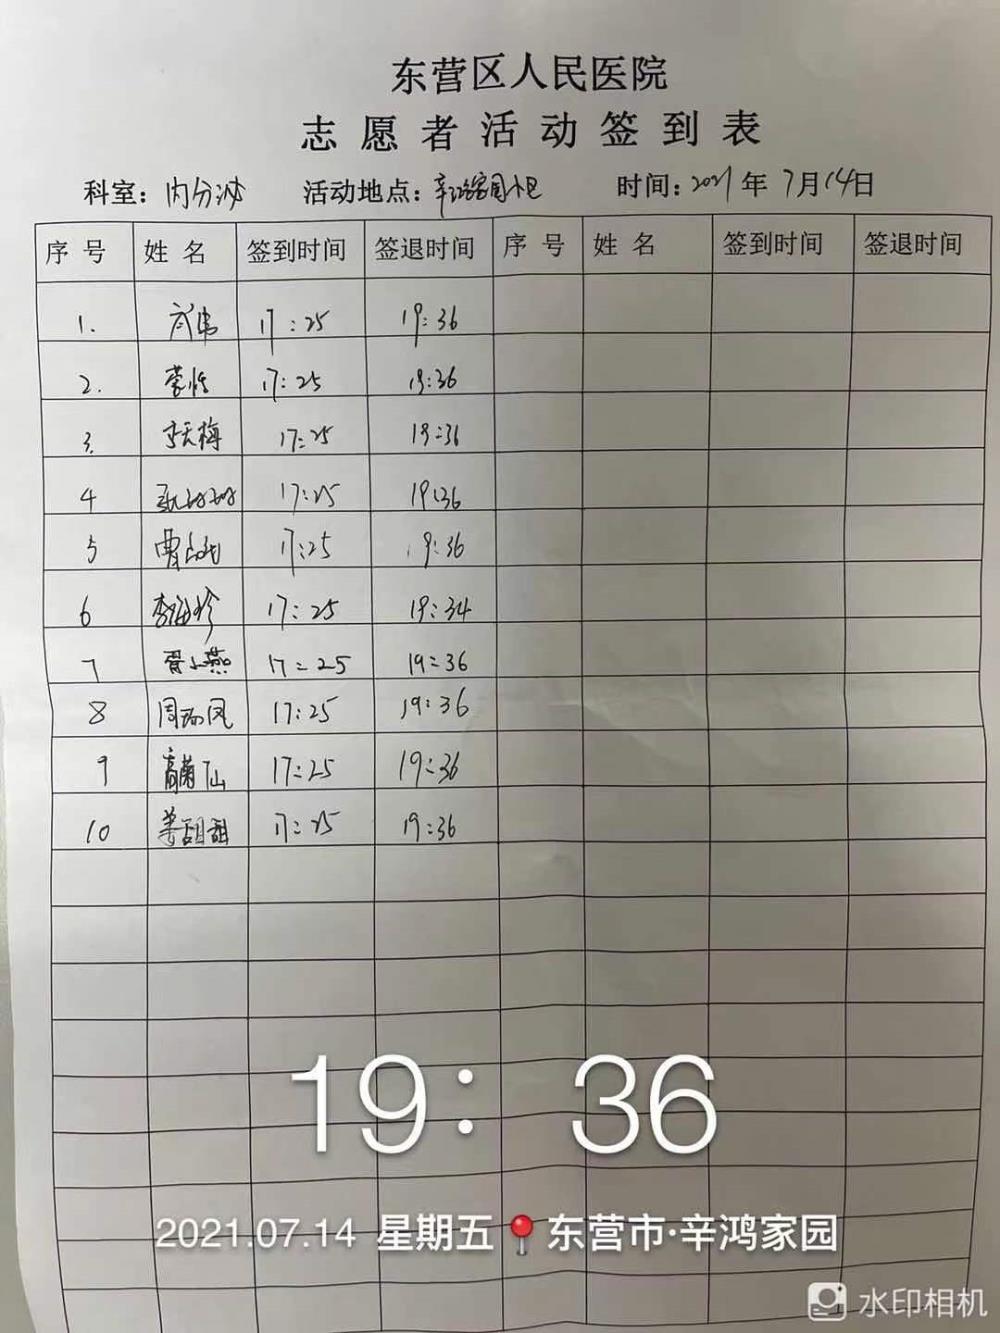 东营区人民医院
志愿者活动签到表
科室：内分泌 活动地点：辛鸿家园小区 时间：2021年7月14日
序号 姓名 签到时间 签退时间 序号 姓名 签到时间 签退时间
1. 17:25 19:36
2. 17:25 19:36
3. 17:25 19:36
4 17:25 19:36
5 17:25 19:36
6 李海珍 17:25 19:34
7 贾小燕 17:25 19:36
8 17:25 19:36
9 17:25 19:36
10 姜甜甜 17:25 19:36
19:36
2021.07.14 星期五 东营市·辛鸿家园
水印相机